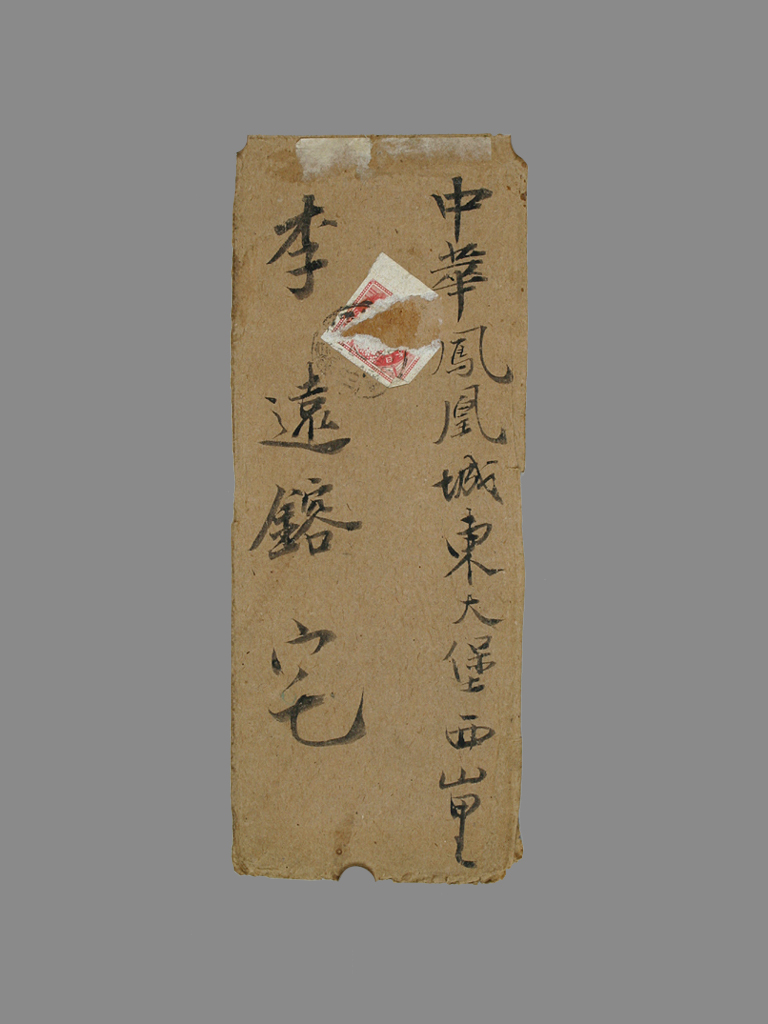 中華鳳凰城東大堡西山里
李遠鎔宅